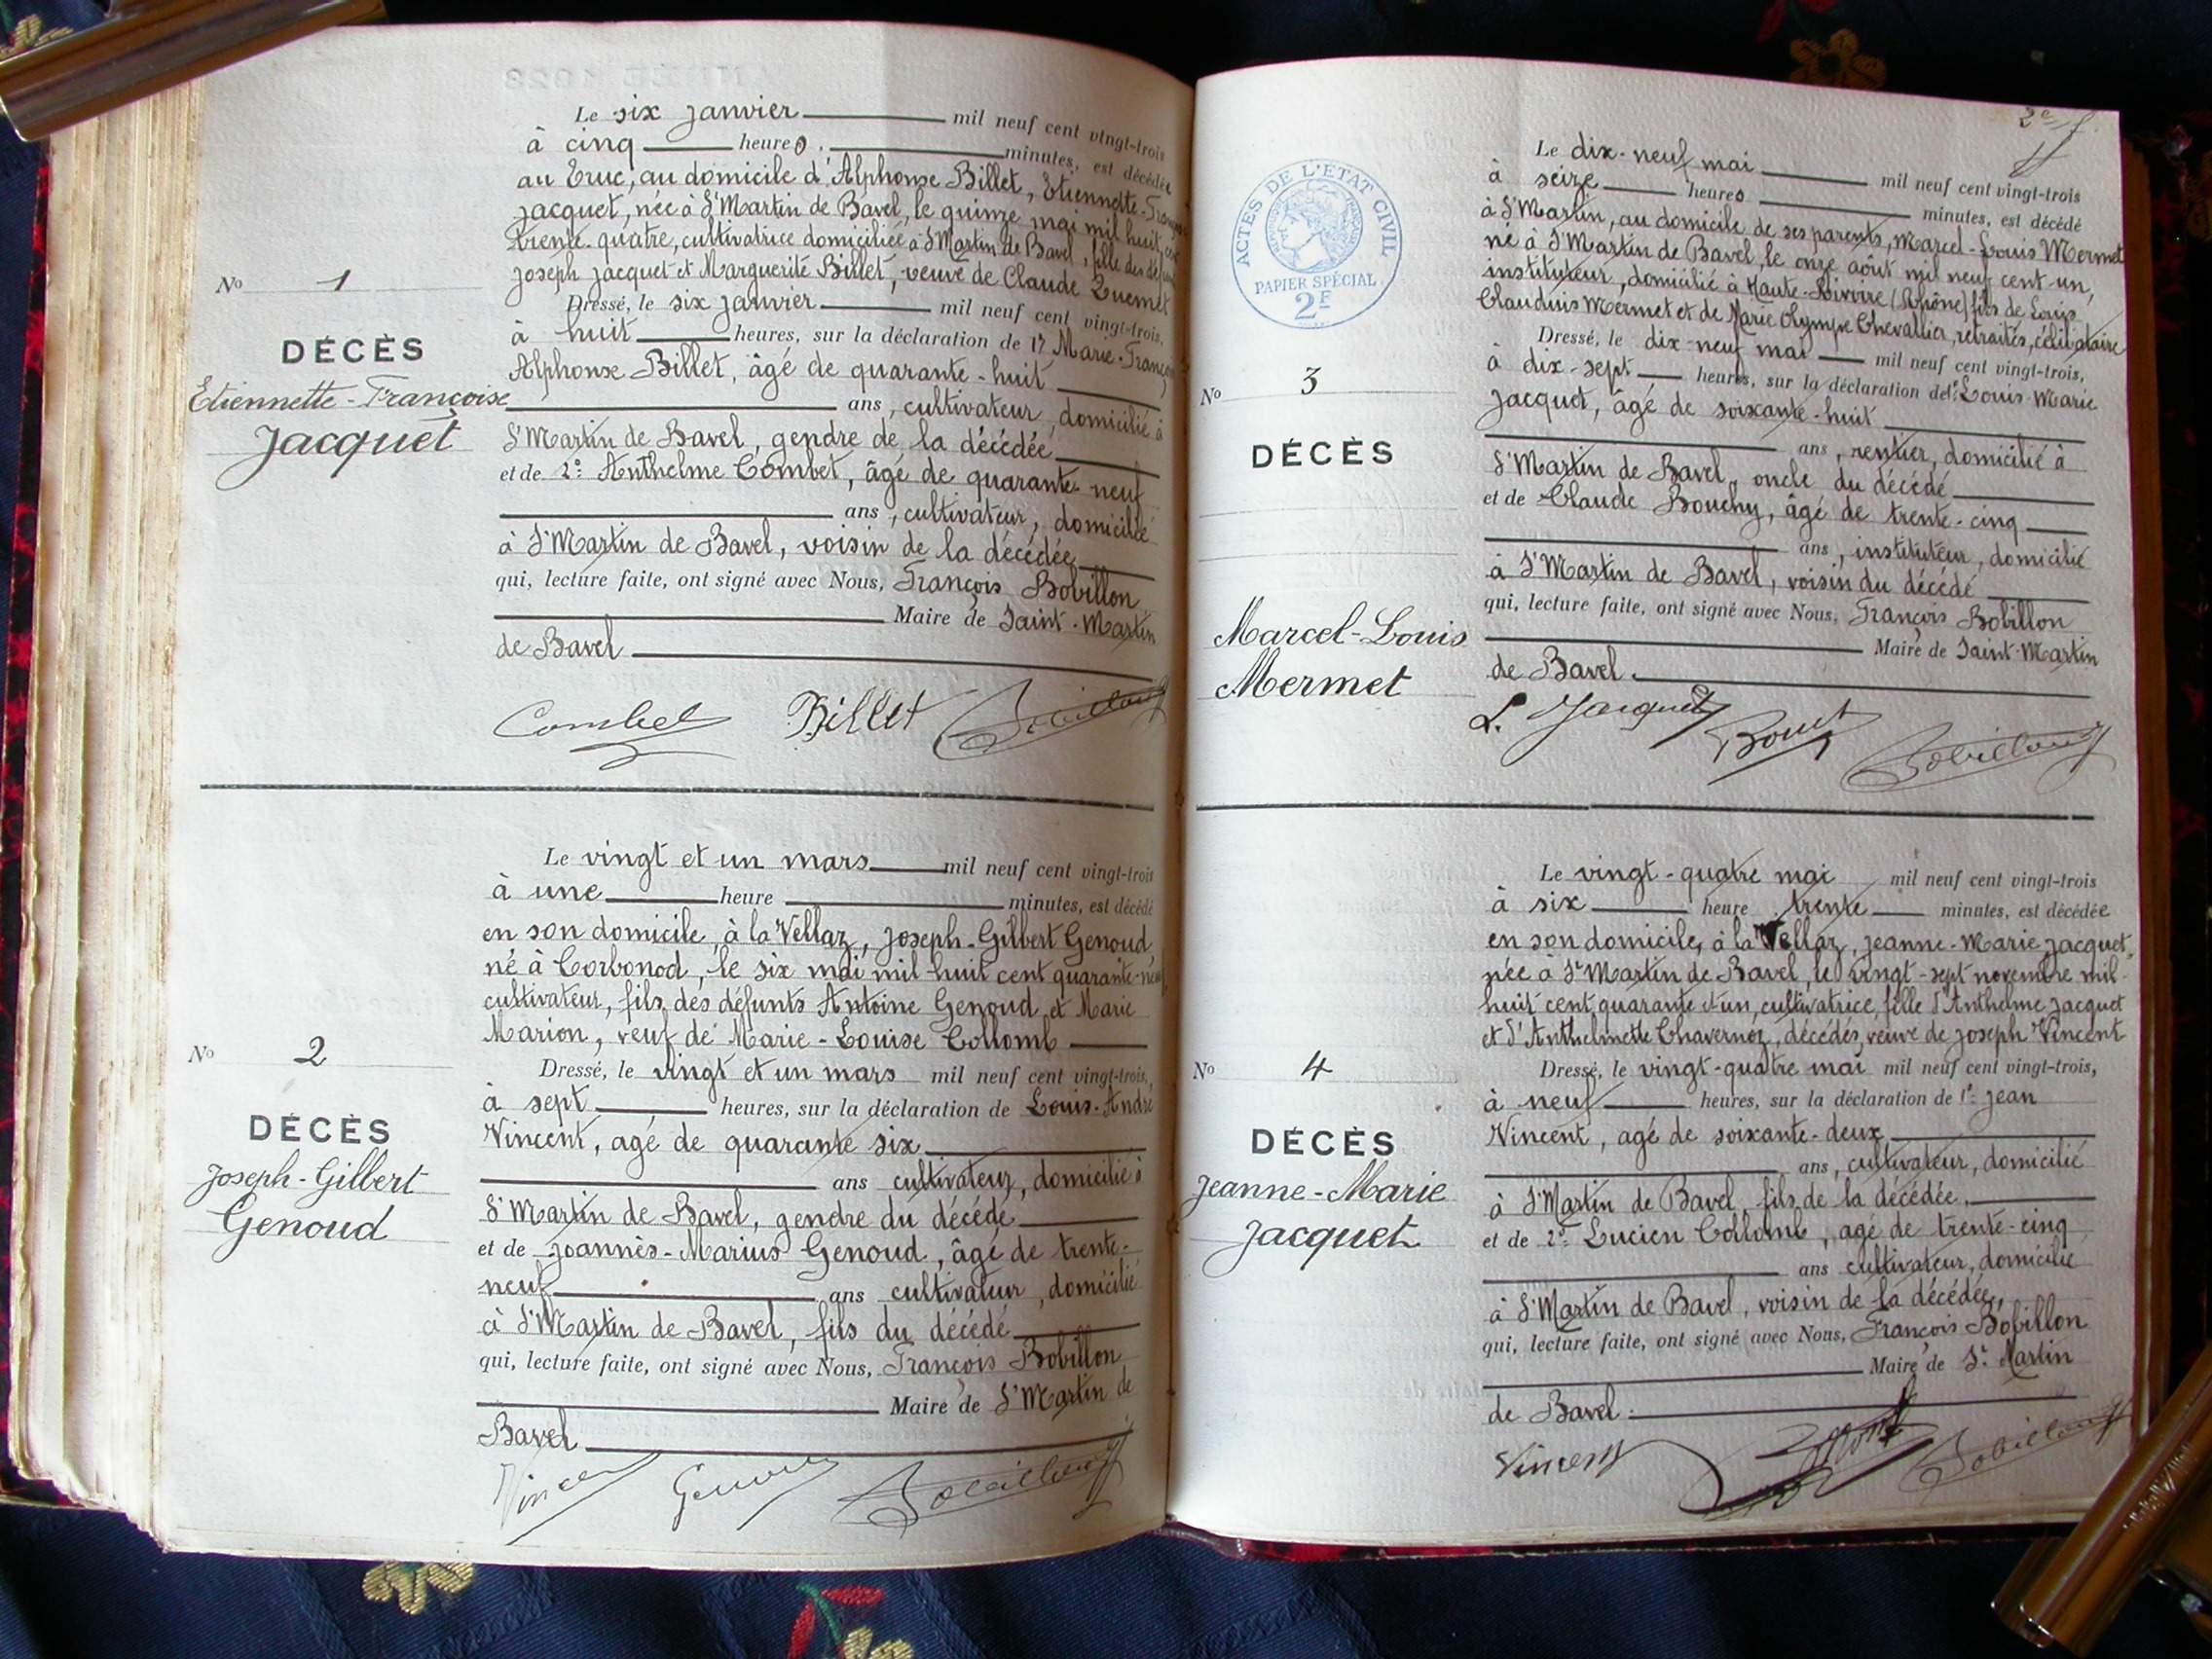 Le six janvier mil neuf cent vingt-trois
à cinq heures, minutes, est décédée
au Truc, au domicile d'Alphonse Billet, Etiennette-Fran
Jacquet, née à St Martin de Bavel, le quinze mai mil huit
trente-quatre, cultivatrice domiciliée à St Martin de Bavel, fille des
Joseph Jacquet et Marguerite Billet, veuve de Claude
Dressé, le six janvier mil neuf cent vingt-trois,
à huit heures, sur la déclaration de 1° Marie-Franç
Alphonse Billet, âgé de quarante-huit
ans, cultivateur, domicilié à
St Martin de Bavel, gendre de la décédée
et de 2° Anthelme Combet, âgé de quarante-neuf
ans, cultivateur, domicilié
à St Martin de Bavel, voisin de la décédée
qui, lecture faite, ont signé avec Nous, François Bobillon
Maire de Saint-Martin
de Bavel
Combet Billet Bobillon
No 1
DÉCÈS
Etiennette-Françoise
Jacquet
Le vingt et un mars mil neuf cent vingt-trois
à une heure minutes, est décédé
en son domicile, à la Vellaz, Joseph-Gilbert Genoud
né à Corbonod, le six mai mil huit cent quarante-neuf
cultivateur, fils des défunts Antoine Genoud et Marie
Marion, veuf de Marie-Louise Collomb
Dressé, le vingt et un mars mil neuf cent vingt-trois,
à sept heures, sur la déclaration de Louis-André
Vincent, agé de quarante six
ans cultivateur, domicilié à
St Martin de Bavel, gendre du décédé
et de Joannès-Marius Genoud, âgé de trente-
neuf ans cultivateur, domicilié
à St Martin de Bavel, fils du décédé
qui, lecture faite, ont signé avec Nous, François Bobillon
Maire de St Martin de
Bavel
Vincent Genoud Bobillon
No 2
DÉCÈS
Joseph-Gilbert
Genoud
2e f
ACTES DE L'ETAT CIVIL
RÉPUBLIQUE FRANÇAISE
PAPIER SPÉCIAL
2F
Le dix-neuf mai mil neuf cent vingt-trois
à seize heures minutes, est décédé
à St Martin, au domicile de ses parents, Marcel-Louis Mermet
né à St Martin de Bavel, le onze août mil neuf cent-un,
instituteur, domicilié à Haute-Rivoire (Rhône) fils de Louis
Claudius Mermet et de Marie Olympe Chevallier, retraités, célibataire
Dressé, le dix-neuf mai mil neuf cent vingt-trois,
à dix-sept heures, sur la déclaration de 1° Louis-Marie
Jacquet, âgé de soixante-huit
ans, rentier, domicilié à
St Martin de Bavel, oncle du décédé
et de Claude Bouchy, âgé de trente-cinq
ans, instituteur, domicilié
à St Martin de Bavel, voisin du décédé
qui, lecture faite, ont signé avec Nous, François Bobillon
Maire de Saint-Martin
de Bavel.
L. Jacquet Bobillon
No 3
DÉCÈS
Marcel-Louis
Mermet
Le vingt-quatre mai mil neuf cent vingt-trois
à six heure trente minutes, est décédée
en son domicile, à la Vellaz, Jeanne-Marie Jacquet
née à St Martin de Bavel, le vingt-sept novembre mil-
huit cent quarante et un, cultivatrice, fille d'Anthelme Jacquet
et d'Anthelmette Chavernoz, décédés, veuve de Joseph Vincent
Dressé, le vingt-quatre mai mil neuf cent vingt-trois,
à neuf heures, sur la déclaration de 1° Jean
Vincent, agé de soixante-deux
ans, cultivateur, domicilié
à St Martin de Bavel, fils de la décédée,
et de 2° Lucien Collomb, agé de trente-cinq
ans cultivateur, domicilié
à St Martin de Bavel, voisin de la décédée,
qui, lecture faite, ont signé avec Nous, François Bobillon
Maire de St Martin
de Bavel.
Vincent Bobillon
No 4
DÉCÈS
Jeanne-Marie
Jacquet